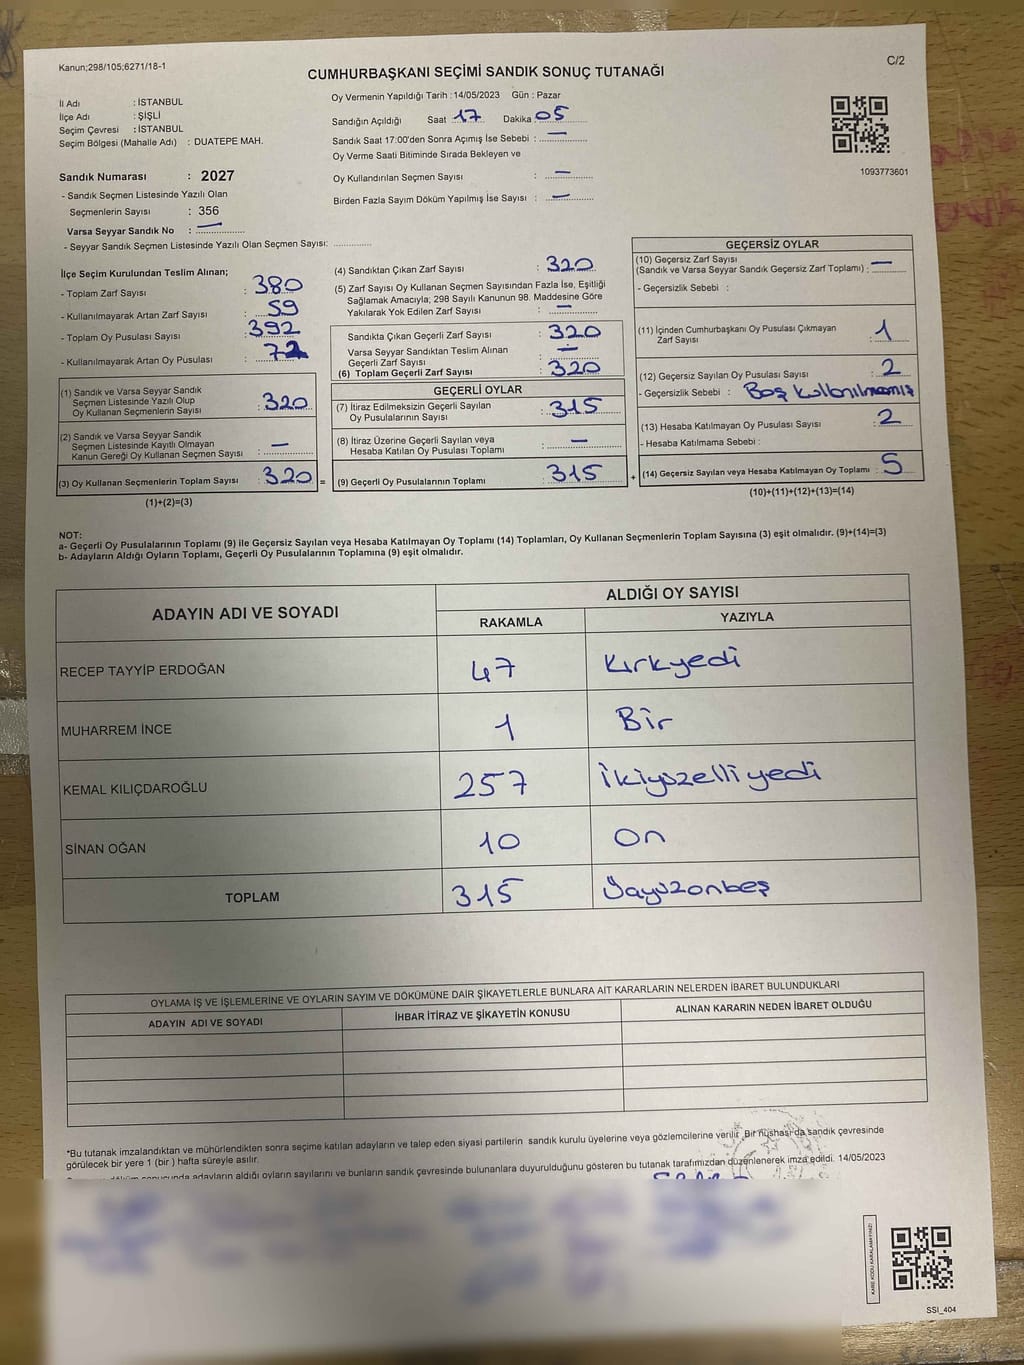 Kanun;298/105;6271/18-1
C/2
CUMHURBAŞKANI SEÇİMİ SANDIK SONUÇ TUTANAĞI
İl Adı : İSTANBUL
İlçe Adı : ŞİŞLİ
Seçim Çevresi : İSTANBUL
Seçim Bölgesi (Mahalle Adı) : DUATEPE MAH.
Sandık Numarası : 2027
- Sandık Seçmen Listesinde Yazılı Olan
Seçmenlerin Sayısı : 356
Varsa Seyyar Sandık No : —
- Seyyar Sandık Seçmen Listesinde Yazılı Olan Seçmen Sayısı: ............
Oy Vermenin Yapıldığı Tarih : 14/05/2023 Gün : Pazar
Sandığın Açıldığı Saat 17 Dakika 05
Sandık Saat 17:00'den Sonra Açımış İse Sebebi : —
Oy Verme Saati Bitiminde Sırada Bekleyen ve
Oy Kullandırılan Seçmen Sayısı : —
Birden Fazla Sayım Döküm Yapılmış İse Sayısı : —
1093773601
İlçe Seçim Kurulundan Teslim Alınan;
- Toplam Zarf Sayısı : 380
- Kullanılmayarak Artan Zarf Sayısı : 59
- Toplam Oy Pusulası Sayısı : 392
- Kullanılmayarak Artan Oy Pusulası : 72
(1) Sandık ve Varsa Seyyar Sandık
Seçmen Listesinde Yazılı Olup
Oy Kullanan Seçmenlerin Sayısı : 320
(2) Sandık ve Varsa Seyyar Sandık
Seçmen Listesinde Kayıtlı Olmayan
Kanun Gereği Oy Kullanan Seçmen Sayısı : —
(3) Oy Kullanan Seçmenlerin Toplam Sayısı : 320 =
(1)+(2)=(3)
(4) Sandıktan Çıkan Zarf Sayısı : 320
(5) Zarf Sayısı Oy Kullanan Seçmen Sayısından Fazla İse, Eşitliği
Sağlamak Amacıyla; 298 Sayılı Kanunun 98. Maddesine Göre
Yakılarak Yok Edilen Zarf Sayısı : —
Sandıkta Çıkan Geçerli Zarf Sayısı : 320
Varsa Seyyar Sandıktan Teslim Alınan
Geçerli Zarf Sayısı : —
(6) Toplam Geçerli Zarf Sayısı : 320
GEÇERLİ OYLAR
(7) İtiraz Edilmeksizin Geçerli Sayılan
Oy Pusulalarının Sayısı : 315
(8) İtiraz Üzerine Geçerli Sayılan veya
Hesaba Katılan Oy Pusulası Toplamı : —
(9) Geçerli Oy Pusulalarının Toplamı : 315 +
GEÇERSİZ OYLAR
(10) Geçersiz Zarf Sayısı
(Sandık ve Varsa Seyyar Sandık Geçersiz Zarf Toplamı) : —
- Geçersizlik Sebebi :
(11) İçinden Cumhurbaşkanı Oy Pusulası Çıkmayan
Zarf Sayısı : 1
(12) Geçersiz Sayılan Oy Pusulası Sayısı : 2
- Geçersizlik Sebebi : Boş kullanılmamış
(13) Hesaba Katılmayan Oy Pusulası Sayısı : 2
- Hesaba Katılmama Sebebi :
(14) Geçersiz Sayılan veya Hesaba Katılmayan Oy Toplamı : 5
(10)+(11)+(12)+(13)=(14)
NOT:
a- Geçerli Oy Pusulalarının Toplamı (9) ile Geçersiz Sayılan veya Hesaba Katılmayan Oy Toplamı (14) Toplamları, Oy Kullanan Seçmenlerin Toplam Sayısına (3) eşit olmalıdır. (9)+(14)=(3)
b- Adayların Aldığı Oyların Toplamı, Geçerli Oy Pusulalarının Toplamına (9) eşit olmalıdır.
ADAYIN ADI VE SOYADI
ALDIĞI OY SAYISI
RAKAMLA YAZIYLA
RECEP TAYYİP ERDOĞAN 47 Kırkyedi
MUHARREM İNCE 1 Bir
KEMAL KILIÇDAROĞLU 257 ikiyüzelliyedi
SİNAN OĞAN 10 On
TOPLAM 315 Üçyüzonbeş
OYLAMA İŞ VE İŞLEMLERİNE VE OYLARIN SAYIM VE DÖKÜMÜNE DAİR ŞİKAYETLERLE BUNLARA AİT KARARLARIN NELERDEN İBARET BULUNDUKLARI
ADAYIN ADI VE SOYADI İHBAR İTİRAZ VE ŞİKAYETİN KONUSU ALINAN KARARIN NEDEN İBARET OLDUĞU
*Bu tutanak imzalandıktan ve mühürlendikten sonra seçime katılan adayların ve talep eden siyasi partilerin sandık kurulu üyelerine veya gözlemcilerine verilir. Bir nüshası da sandık çevresinde
görülecek bir yere 1 (bir ) hafta süreyle asılır.
sonucunda adayların aldığı oyların sayılarını ve bunların sandık çevresinde bulunanlara duyurulduğunu gösteren bu tutanak tarafımızdan düzenlenerek imza edildi. 14/05/2023
KARE KODU KARALAMAYINIZ!
SSI_404